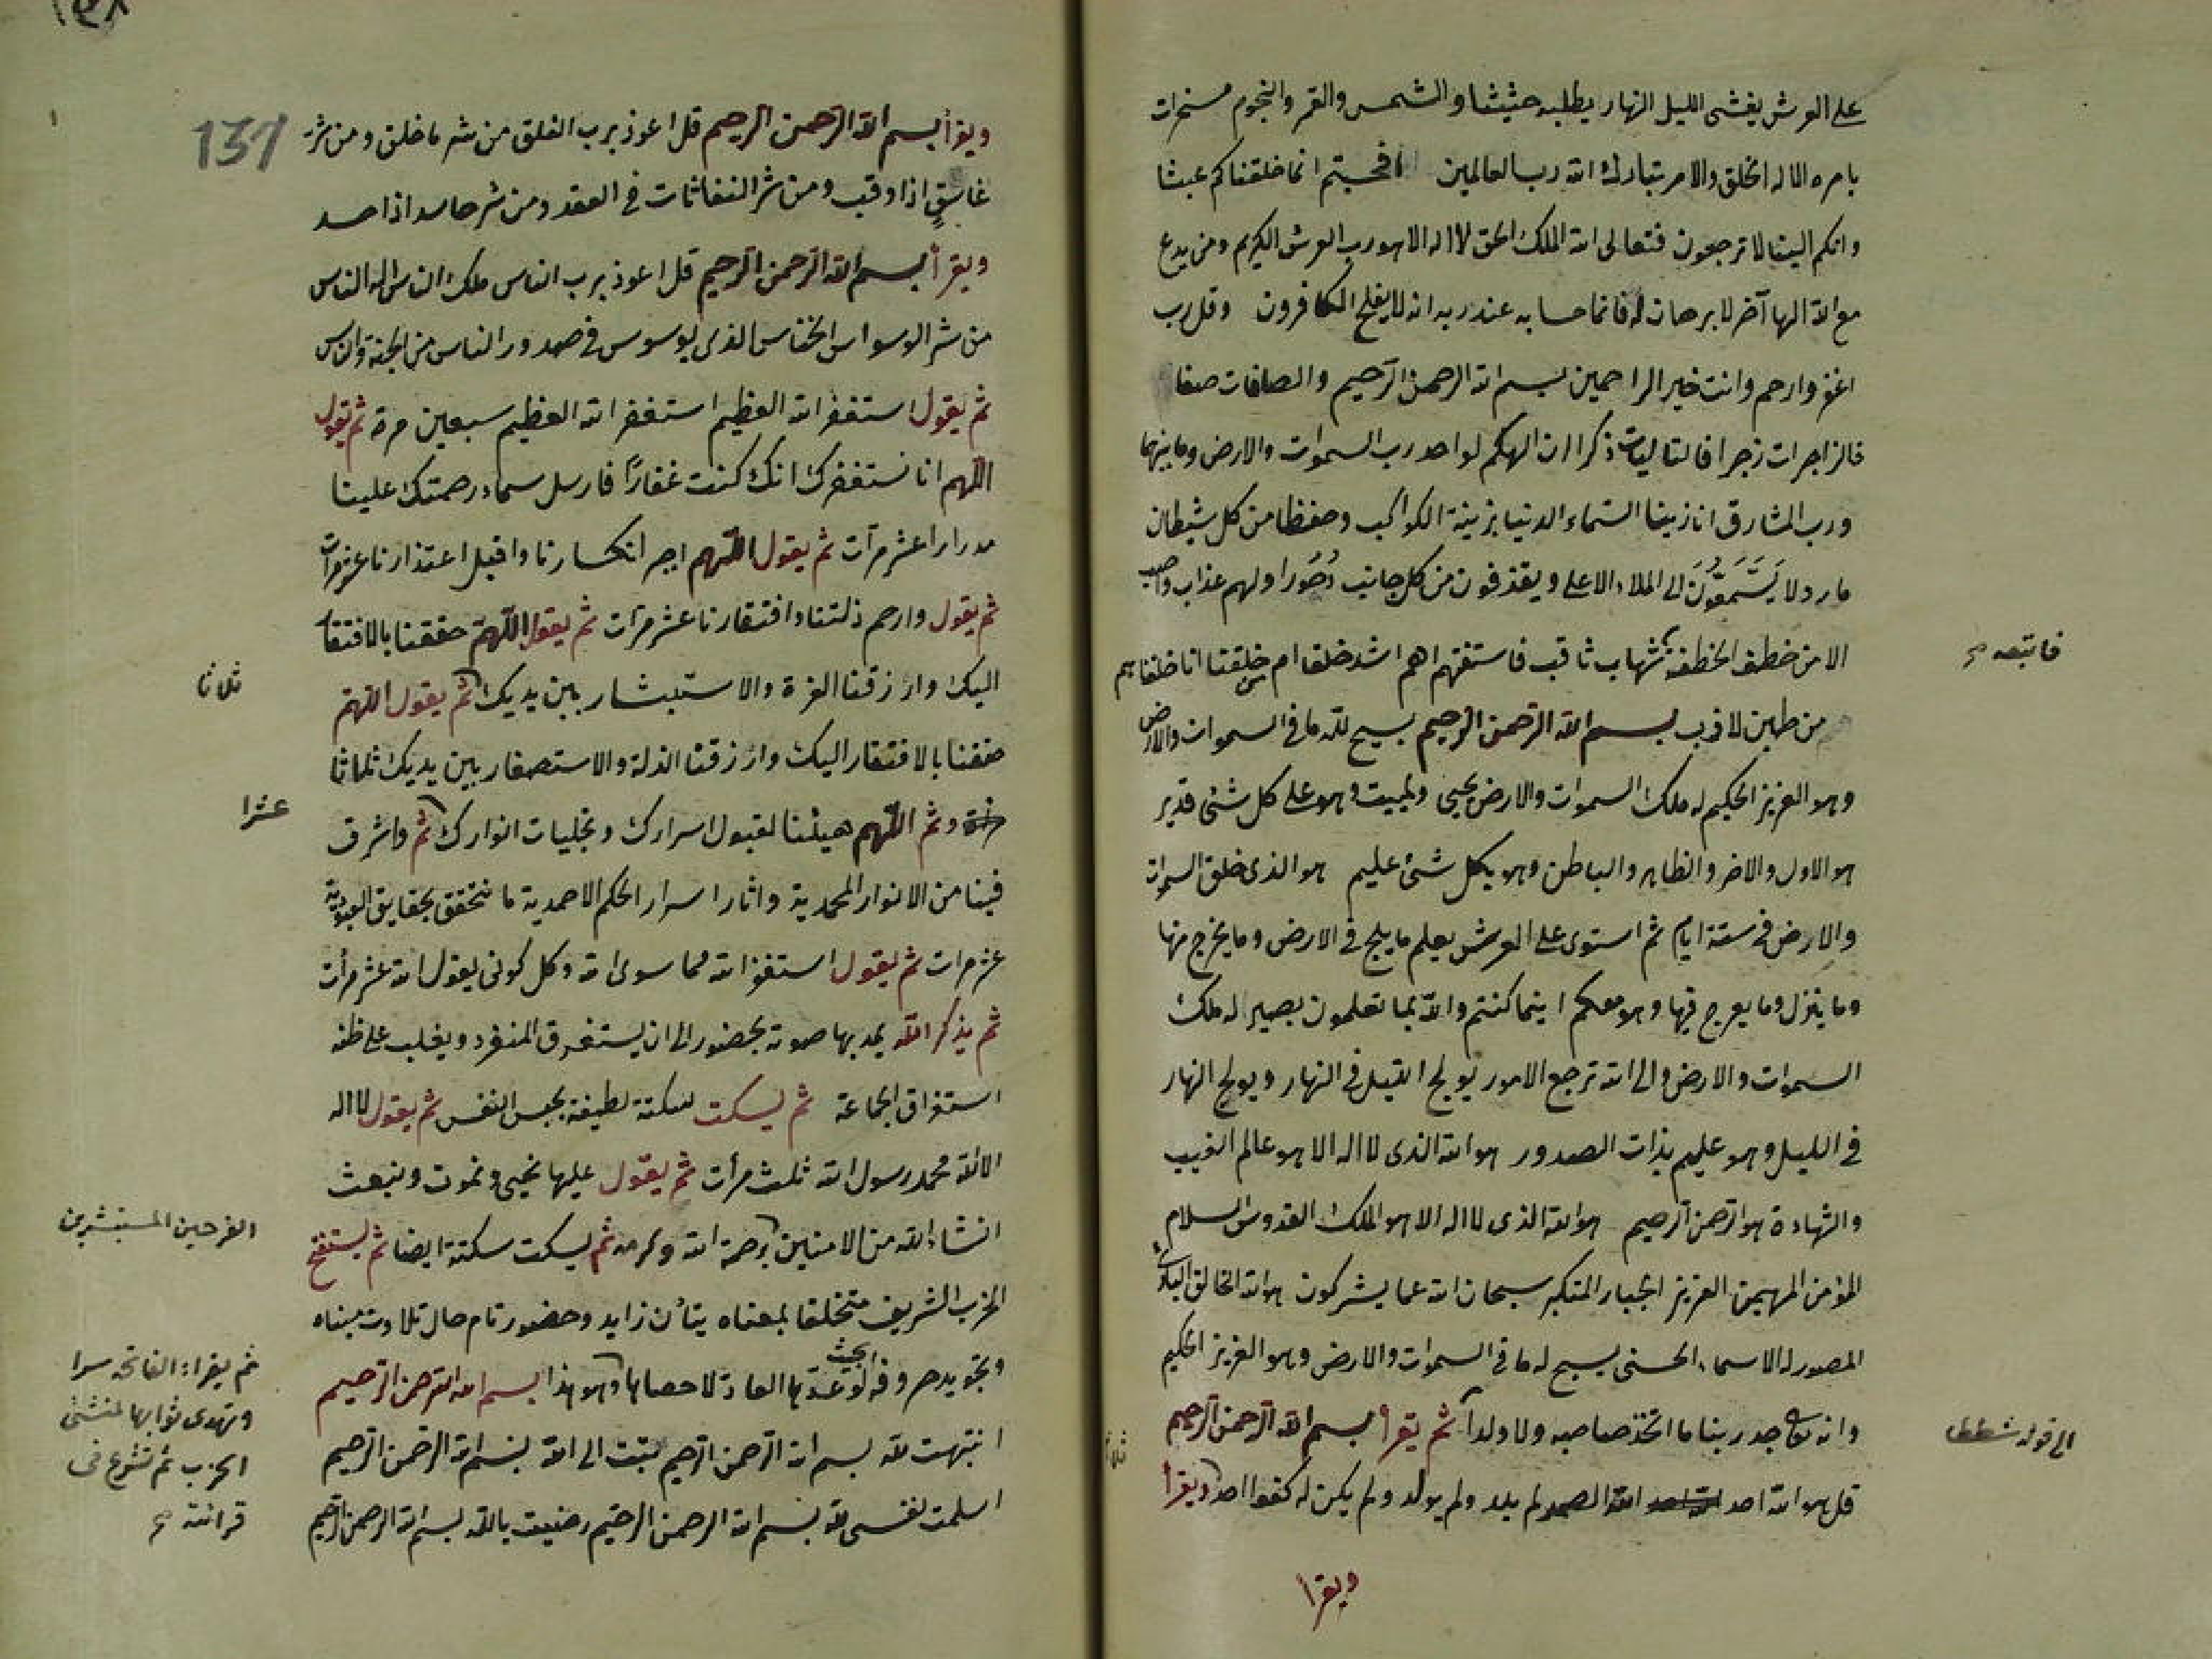 على العرش يغشى الليل النهار يطلبه حثيثا والشمس والقمر والنجوم مسخرات
بامره الا له الخلق والامر تبارك الله رب العالمين افحسبتم انما خلقناكم عبثا
وانكم الينا لا ترجعون فتعالى الله الملك الحق لا اله الا هو رب العرش الكريم ومن يدع
مع الله الها آخر لا برهان له فانما حسابه عند ربه انه لا يفلح الكافرون وقل رب
اغفر وارحم وانت خير الراحمين بسم الله الرحمن الرحيم والصافات صفا
فالزاجرات زجرا فالتاليات ذكرا ان الهكم لواحد رب السموات والارض وما بينهما
ورب المشارق انا زينا السماء الدنيا بزينة الكواكب وحفظا من كل شيطان
مارد لا يَسَّمَّعُونَ الى الملاء الاعلى ويقذفون من كل جانب دُحُورا ولهم عذاب واصب
الا من خطف الخطفة شهاب ثاقب فاستفتهم اهم اشد خلقا ام من خلقنا انا خلقناهم
فاتبعه صح
من طين لازب بسم الله الرحمن الرحيم يسبح لله ما في السموات والارض
وهو العزيز الحكيم له ملك السموات والارض يحيى ويميت وهو على كل شئ قدير
هو الاول والاخر والظاهر والباطن وهو بكل شئ عليم هو الذى خلق السموات
والارض في ستة ايام ثم استوى على العرش يعلم ما يلج في الارض وما يخرج منها
وما ينزل وما يعرج فيها وهو معكم اينما كنتم والله بما تعملون بصير له ملك
السموات والارض والى الله ترجع الامور يولج الليل في النهار ويولج النهار
في الليل وهو عليم بذات الصدور هو الله الذى لا اله الا هو عالم الغيب
والشهادة هو الرحمن الرحيم هو الله الذى لا اله الا هو الملك القدوس السلام
المؤمن المهيمن العزيز الجبار المتكبر سبحان الله عما يشركون هو الله الخالق البارئ
المصور له الاسماء الحسنى يسبح له ما في السموات والارض وهو العزيز الحكيم
وانه تعالى جد ربنا ما اتخذ صاحبه ولا ولدا ثم يقرأ بسم الله الرحمن الرحيم
الى قوله شططا
ثلاثا
قل هو الله احد الله الصمد لم يلد ولم يولد ولم يكن له كفوا احد ويقرأ
ويقرا
١٣٨
137
ويقرأ بسم الله الرحمن الرحيم قل اعوذ برب الفلق من شر ما خلق ومن شر
غاسقٍ اذا وقب ومن شر النفاثات في العقد ومن شر حاسد اذا حسد
ويقرأ بسم الله الرحمن الرحيم قل اعوذ برب الناس ملك الناس اله الناس
من شر الوسواس الخناس الذى يوسوس في صدور الناس من الجنة والناس
ثم يقول استغفر الله العظيم استغفر الله العظيم سبعين مرة ثم يقول
اللهم انا نستغفرك انك كنت غفارًا فارسل سماء رحمتك علينا
مدرارا عشر مرآت ثم يقول اللهم اجبر انكسارنا واقبل اعتذارنا عشر مرات
ثم يقول وارحم ذلتنا وافتقارنا عشر مرآت ثم يقول اللهم حققنا بالافتقار
اليك وارزقنا العزة والاستبشار بين يديك ثم يقول اللهم
ثلاثا
حققنا بالافتقار اليك وارزقنا الذلة والاستصغار بين يديك ثلاثا
وثم اللهم هيئنا لقبول اسرارك وتجليات انوارك ثم واشرق
عشرا
فينا من الانوار المحمدية واثار اسرار الحكم الاحمدية ما نتحقق بحقايق العبودية
عشر مرات ثم يقول استغفر الله مما سوى الله وكل كونى يقول الله عشر مرأت
ثم يذكر الله يمد بها صوته بحضور الى ان يستغرق المنفرد ويغلب على ظنه
استغراق الجماعة ثم يسكت سكتة لطيفة بحبس النفس ثم يقول لا اله
الا الله محمد رسول الله ثلث مرأت ثم يقول عليها نحيى ونموت ونبعث
انشاء الله من الامنين برحمة الله وكرمه ثم يسكت سكتة ايضا ثم يستفتح
الفرحين المستبشرين
الحزب الشريف متخلقا بمعناه بتأن زايد وحضور تام حال تلاوت مبناه
وتجويد حروفه بحيث لو عدّها العاد لاحصاها وهو هذا بسم الله الرحمن الرحيم
ثم يقراء الفاتحه سرا
وتهدى ثوابها لمنشئ
الحزب ثم تشرع في
قرائته صح
انتبهت لله بسم الله الرحمن الرحيم تبت الى الله بسم الله الرحمن الرحيم
اسلمت نفسى لله بسم الله الرحمن الرحيم رضيت بالله بسم الله الرحمن الرحيم